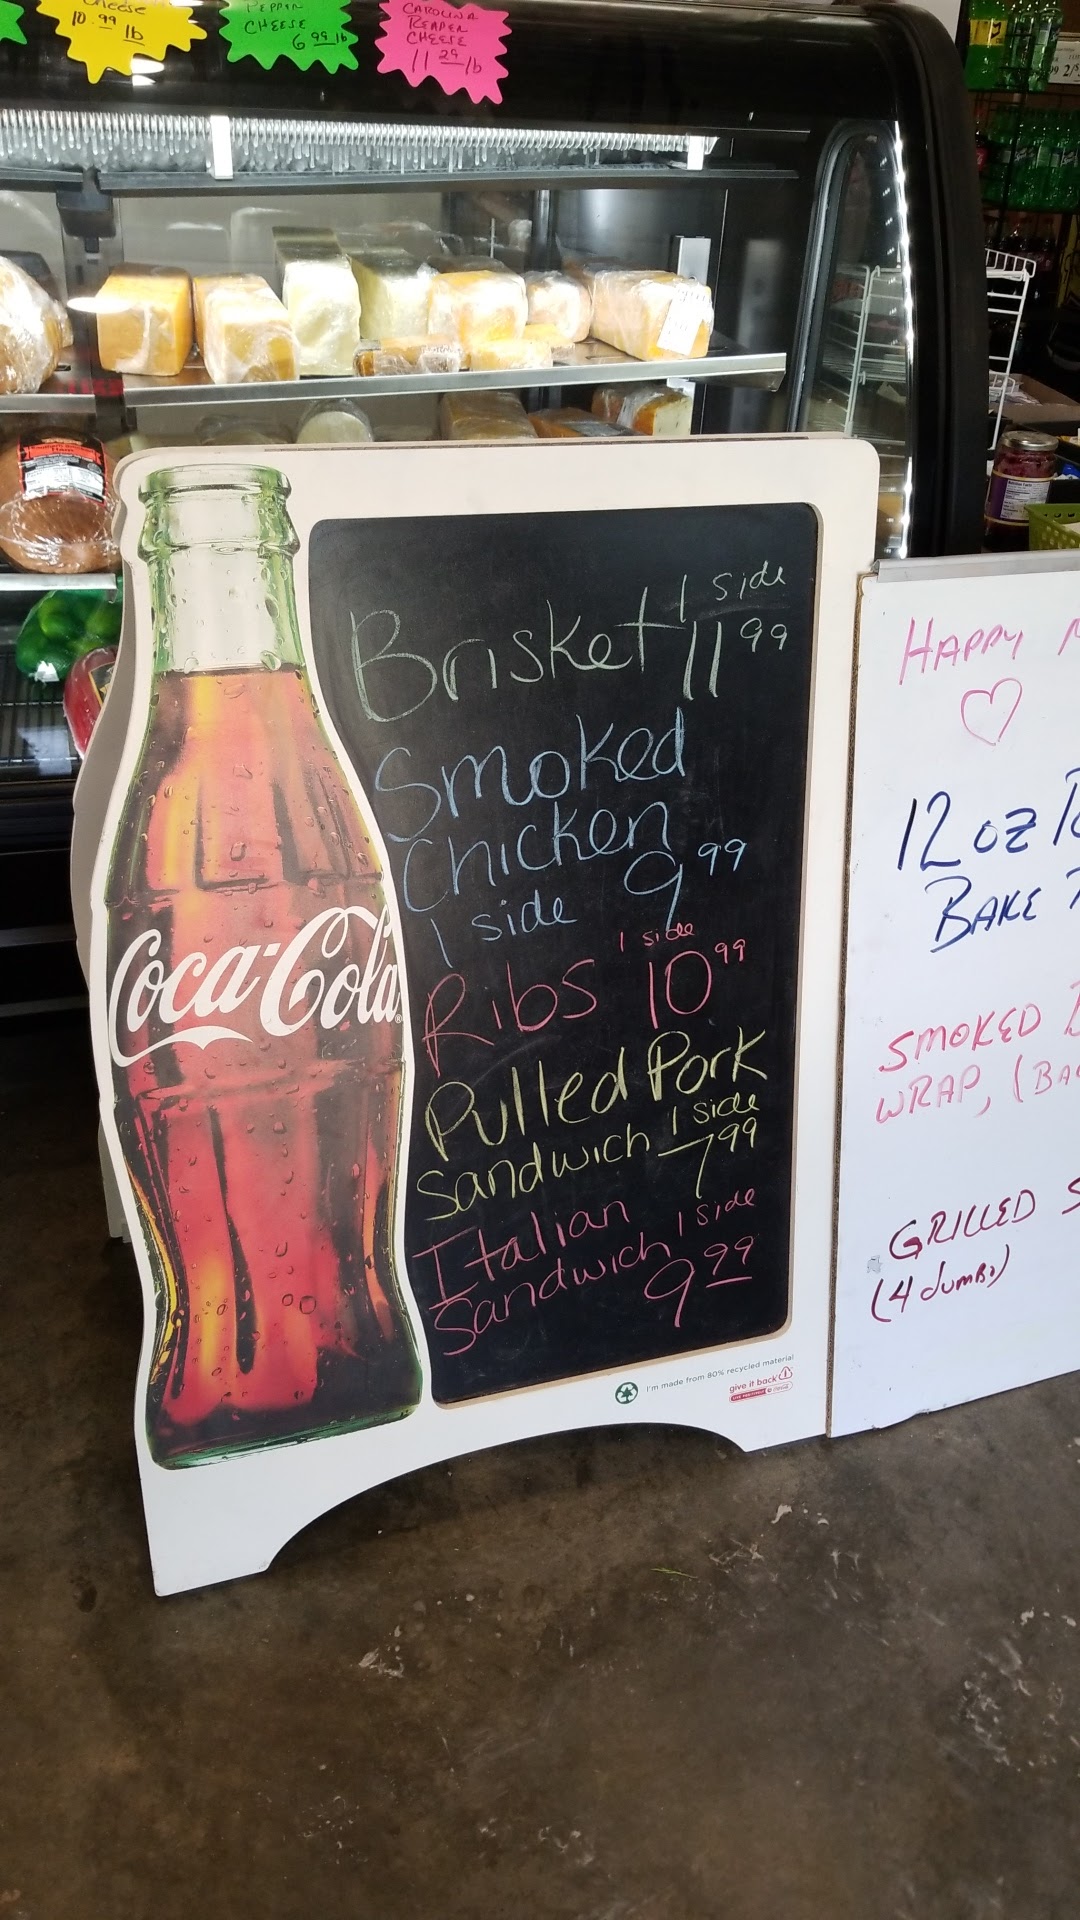 Cheese
10.99 lb
CHEESE
6.99 lb
CAROLINA
REAPER
CHEESE
11 29 /lb
Brisket 1 side
11 99
Smoked
Chicken
1 side 9 99
Ribs 1 side
10 99
Pulled Pork
Sandwich 1 side
7 99
Italian
Sandwich 1 side
9 99
Coca-Cola
I'm made from 80% recycled material
give it back
HAPPY
12 OZ
BAKE
SMOKED
WRAP,
GRILLED